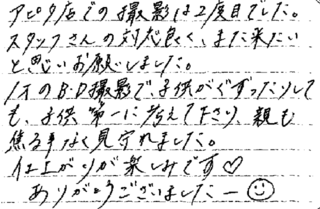 アピタ店での撮影は2度目でした。
スタッフさんの対応良く、また来たい
と思いお願いしました。
1才のB・D撮影で、子供がぐずったりして
も、子供第一に考えて下さり、親も
焦る事なく見守れました。
仕上がりが楽しみです♡
ありがとうございましたー☺